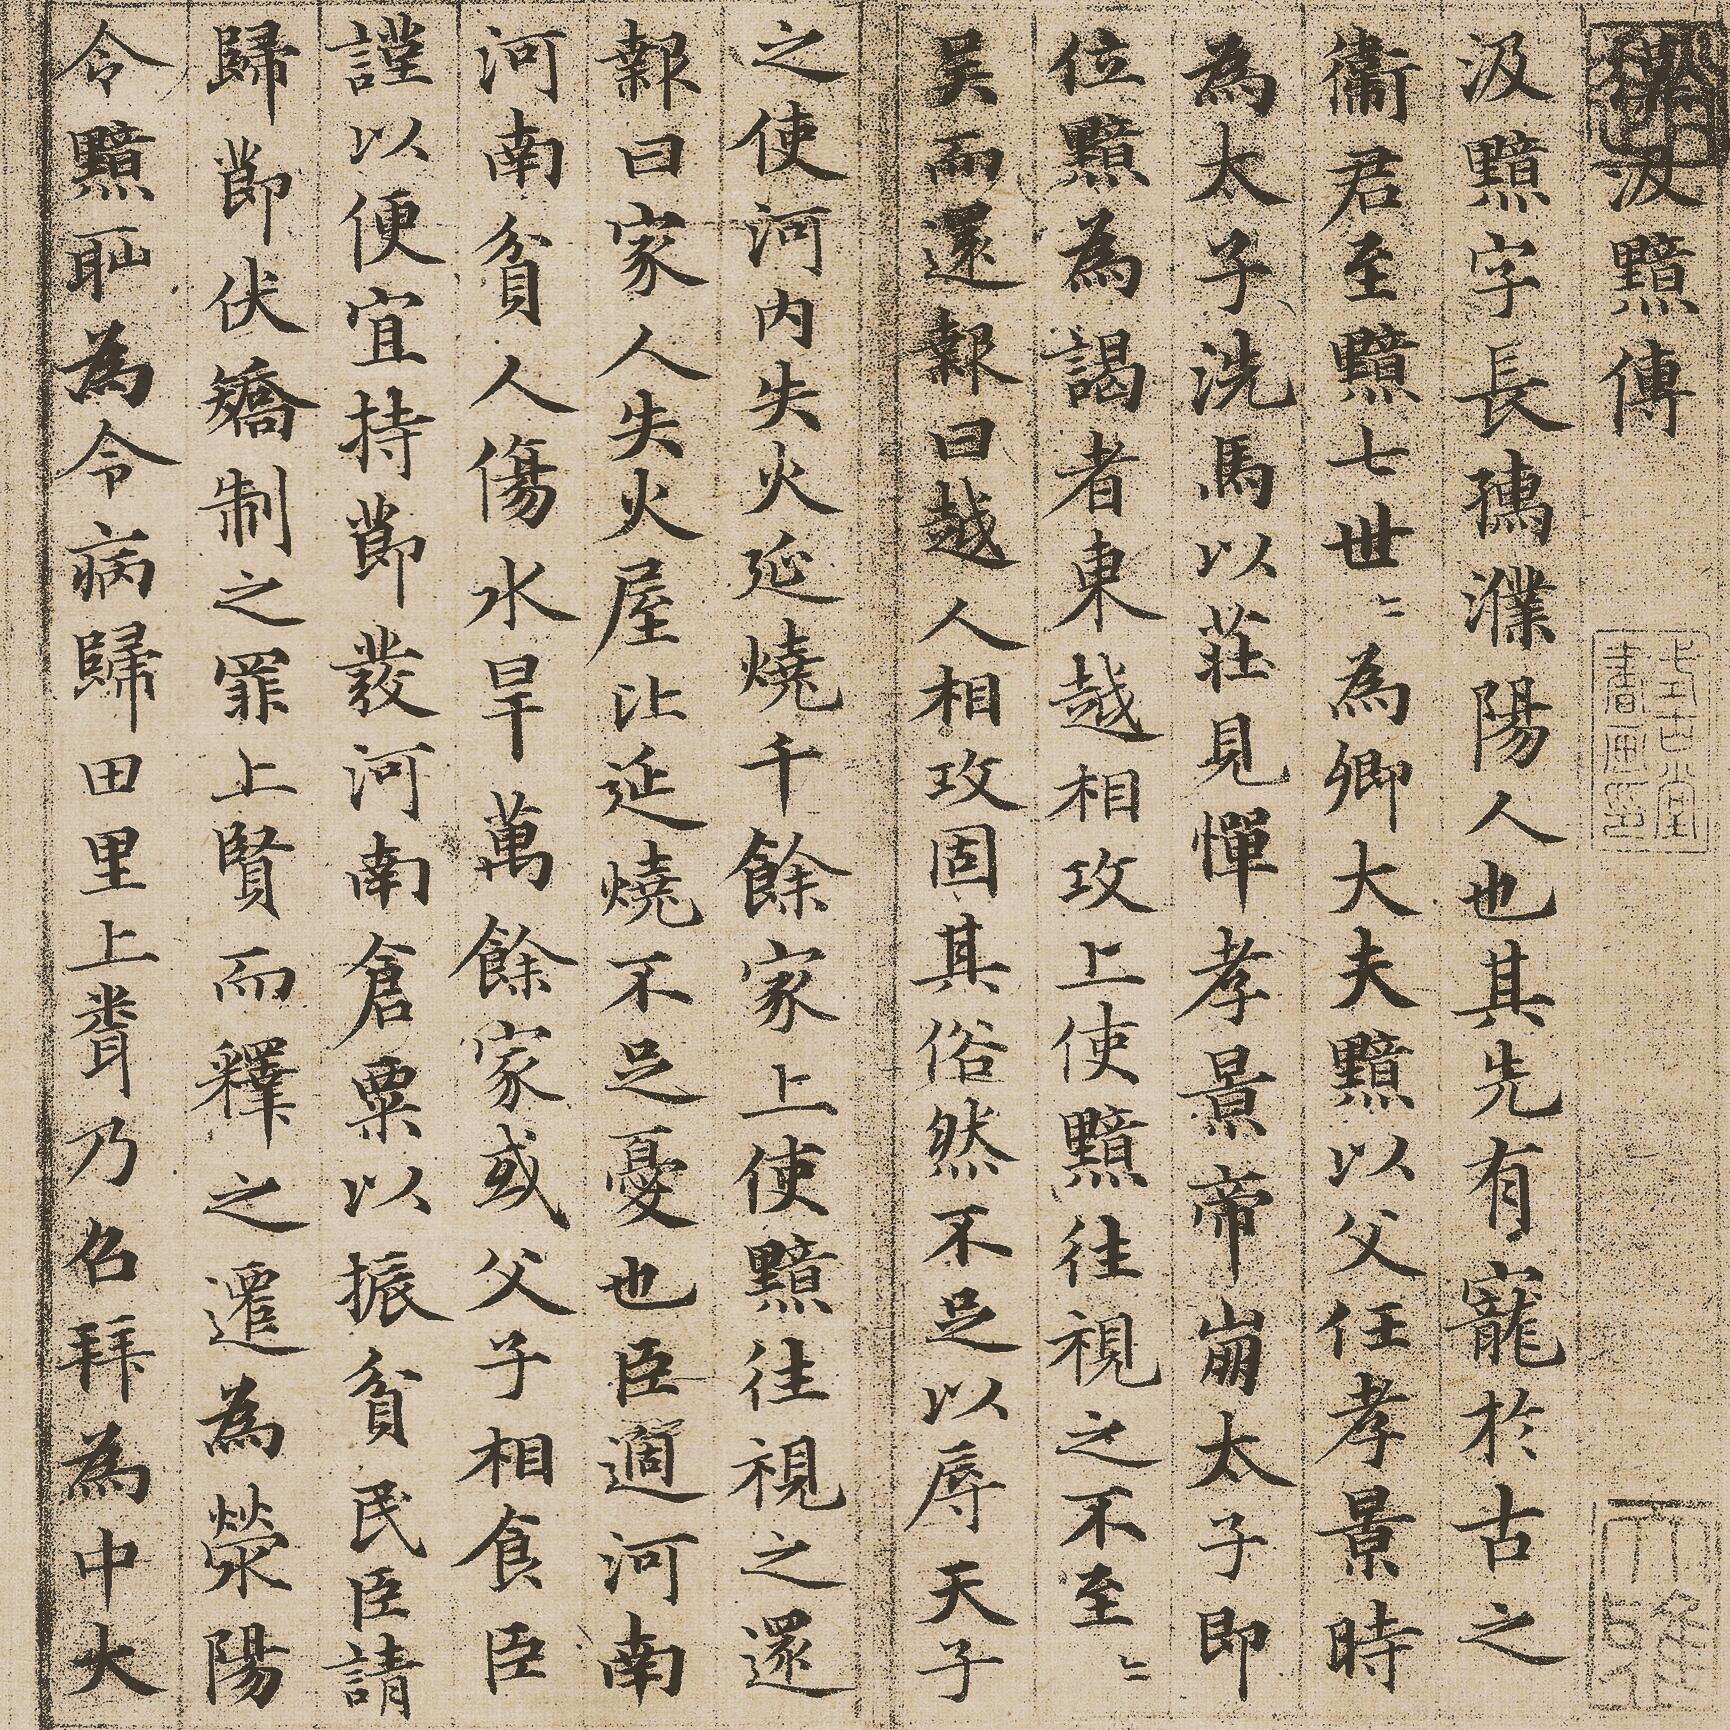 汲黯傳
汲黯字長孺濮陽人也其先有寵於古之
衞君至黯七世〻為卿大夫黯以父任孝景時
為太子洗馬以莊見憚孝景帝崩太子即
位黯為謁者東越相攻上使黯往視之不至〻
吴而還報曰越人相攻固其俗然不足以辱天子
之使河内失火延燒千餘家上使黯往視之還
報曰家人失火屋比延燒不足憂也臣適河南
河南貧人傷水旱萬餘家或父子相食臣
謹以便宜持節發河南倉粟以振貧民臣請
歸節伏矯制之罪上賢而釋之遷為滎陽
令黯恥為令病歸田里上聞乃召拜為中大